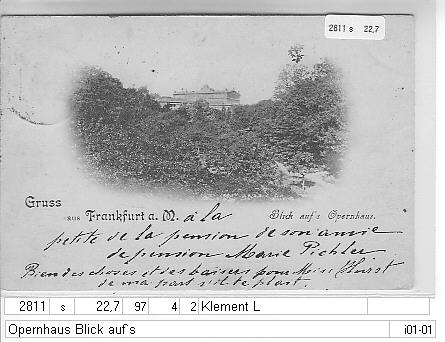 2811 s 22,7
Gruss
aus Frankfurt a. M. à la
Blick auf's Opernhaus.
petite de la pension de son amie
de pension Marie Pichler
Bien des choses et des baisers pour Miss Hurst
de ma part s'il te plait.
2811 s 22,7 97 4 2 Klement L
Opernhaus Blick auf`s i01-01